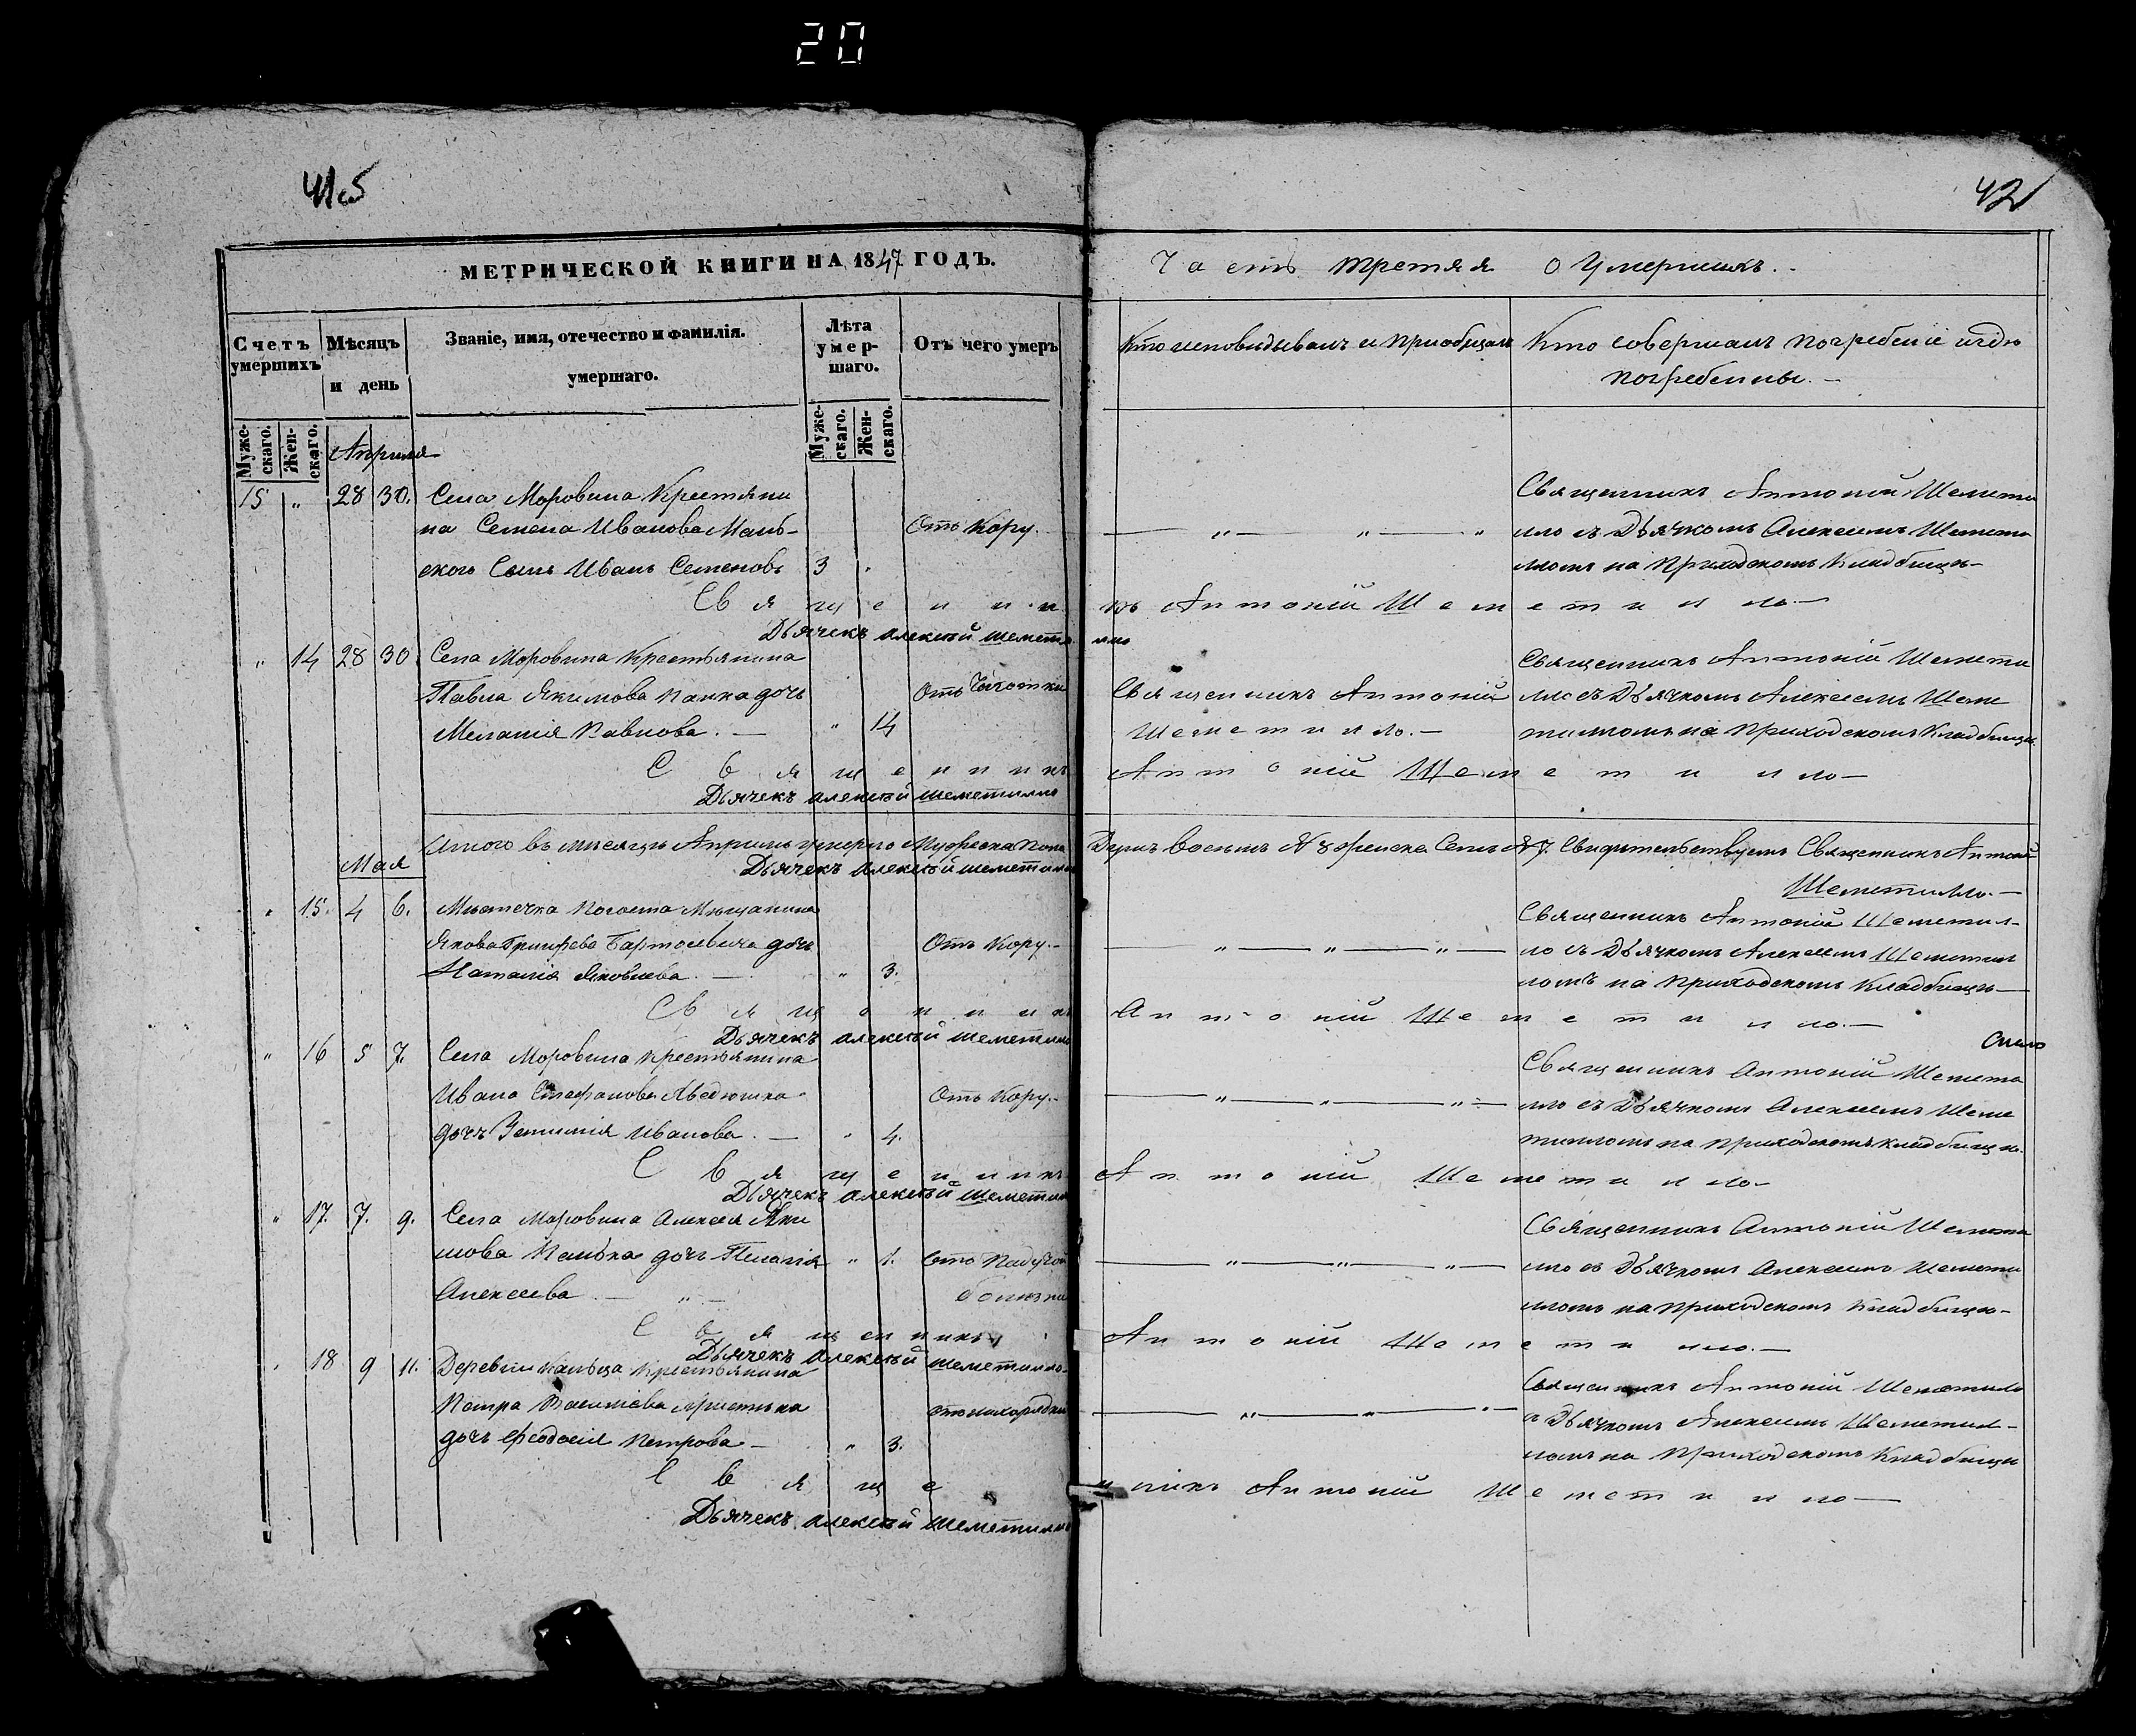 20
41об
42
МЕТРИЧЕСКОЙ КНИГИ НА 1847 ГОДЪ.
Часть третяя о Умершихъ.
Счетъ умершихъ
Мѣсяцъ и день
Званіе, имя, отечество и фамилія умершаго.
Лѣта умершаго.
Отъ чего умеръ
Кто исповѣдывалъ и приобщалъ
Кто совершалъ погребеніе и гдѣ погребенны. -
Мужескаго.
Женскаго.
Мужескаго.
Женскаго.
Апрѣля
15 " 28 30. Села Моровина Крестяни
на Семена Иванова
Отъ Кору.
скаго Сынъ Иванъ Семеновъ 3 "
Священникъ Антоній Шеметилло
съ Дьячкомъ Алексѣемъ Шемети
лломъ на Приходскомъ Кладбищѣ
Священникъ Антоній Шеметилло.
Дьячекъ Алексѣй Шеметилло
" 14 28 30 Села Моровина Крестьянина
Павла Якимова Панка дочь Отъ Чахотки
Меланія Павлова. " 14
Священникъ Антоній
Шеметилло. -
Священникъ Антоній Шемети
лло съ Дьячкомъ Алексѣемъ Шеме
тилломъ на Приходскомъ Кладбищѣ
Священникъ Антоній Шеметилло
Дьячекъ Алексѣй Шеметилло
Итого въ мѣсяцѣ Апрѣлѣ умерло Мужеска пола Душъ восемь № 8 Женска Семь № 7. Свидѣтельствуемъ Священникъ Антоній
Шеметилло. -
Дьячекъ Алексѣй Шеметилло
Мая
" 15. 4 6. Мѣстечка Погоста Мѣщанина
Якова дочь Отъ Кору. -
Наталія Яковлева. " 3.
Священникъ Антоній Шеметил-
ло съ Дьячкомъ Алексѣемъ Шеметил
ломъ на Приходскомъ Кладбищѣ
Священникъ Антоній Шеметилло. -
Дьячекъ Алексѣй Шеметилло
" 16 5 7. Села Моровина Крестьянина
Ивана Стефанова Отъ Кору. -
дочь Иванова. " 4.
Священникъ Антоній Шемети
лло съ Дьячкомъ Алексѣемъ Шеме
тилломъ на Приходскомъ Кладбищѣ.
Священникъ Антоній Шеметилло
Дьячекъ Алексѣй Шеметилло
" 17. 7. 9. Села Моровина Алексея Яки
мова дочь Пелагія " 1. Отъ Падучой
Алексеева болезни
Священникъ Антоній Шемети
лло съ Дьячкомъ Алексѣемъ Шемети
лломъ на Приходскомъ Кладбищѣ
Священникъ Антоній Шеметилло. -
Дьячекъ Алексѣй Шеметилло
" 18 9 11. Деревни Крестьянина
Петра отъ лихорадки
дочь Феодосія Петрова " 3.
Священникъ Антоній Шеметилло
съ Дьячкомъ Алексѣемъ Шеметил-
ломъ на Приходскомъ Кладбищѣ
Священникъ Антоній Шеметилло
Дьячекъ Алексѣй Шеметилло